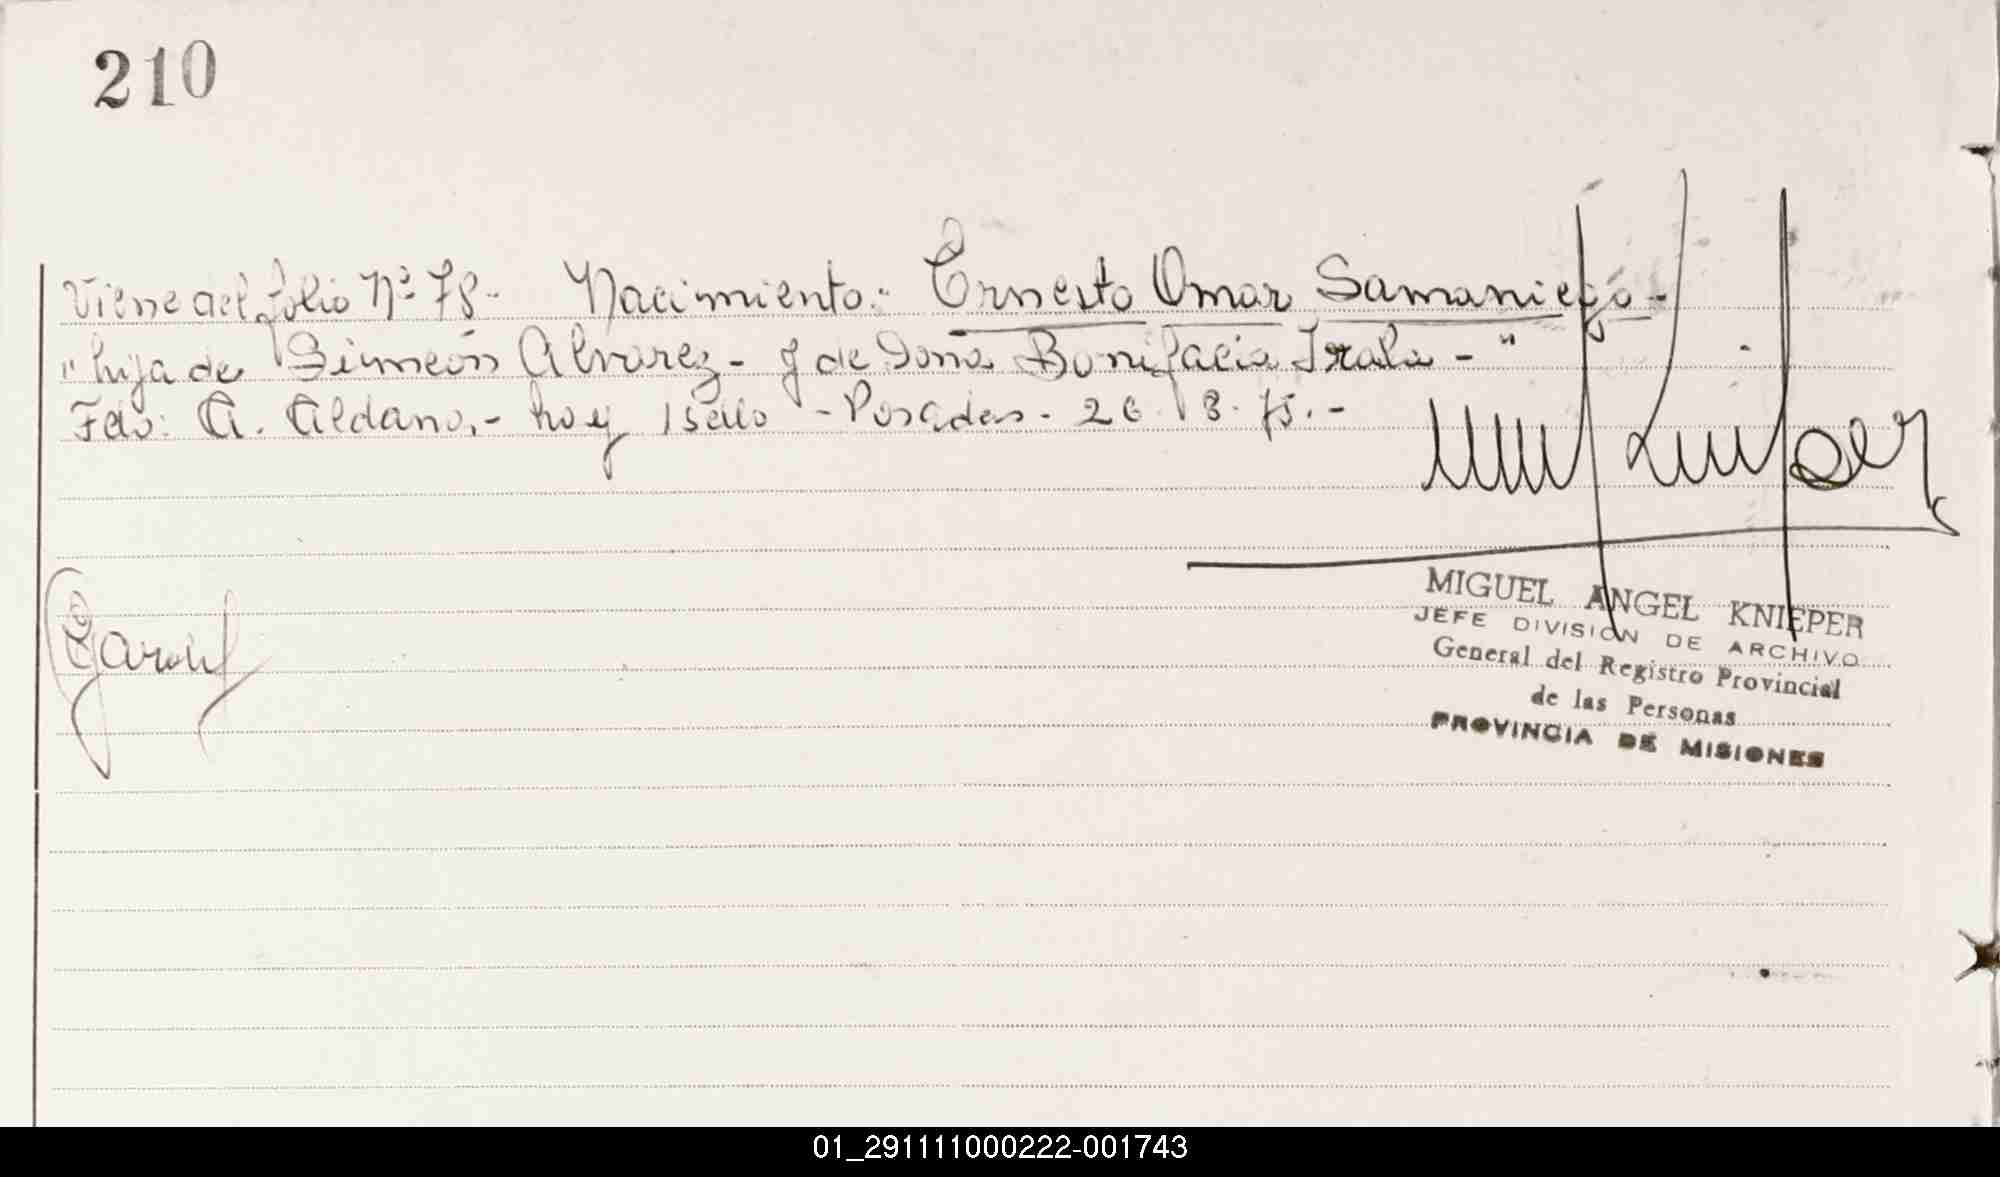 210
Viene del folio Nº 78.- Nacimiento.- Ernesto Omar Samaniego-
"hija de Simeón Alvarez- y de Doña Bonifacia Irala - "
Fdo: A. Aldano.- hoy 1 sello - Posadas- 26. 8. 75.-
MIGUEL ANGEL KNIEPER
JEFE DIVISION DE ARCHIVO
General del Registro Provincial
de las Personas
PROVINCIA DE MISIONES
01_291111000222-001743